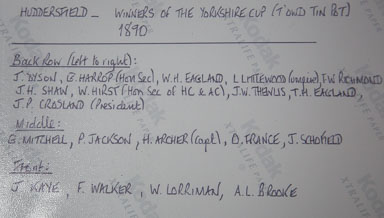 HUDDERSFIELD - WINNERS OF THE YORKSHIRE CUP (T'OWD TIN POT)
1890
Back Row (left to right):
J. DYSON, G. HARROP (Hon Sec), W.H. EAGLAND, L LITTLEWOOD (umpire), F.W RICHMOND
J.H. SHAW, W. HIRST (Hon Sec of HC & AC), J.W. THEWLIS, T.H. EAGLAND,
J.P. CROSLAND (President)
Middle:
G. MITCHELL, P. JACKSON, H. ARCHER (capt), D. FRANCE, J. SCHOFIELD
Front:
J KAYE, F. WALKER, W. LORRIMAN, A.L. BROOKE
Kodak
XTRALIFE PAPER